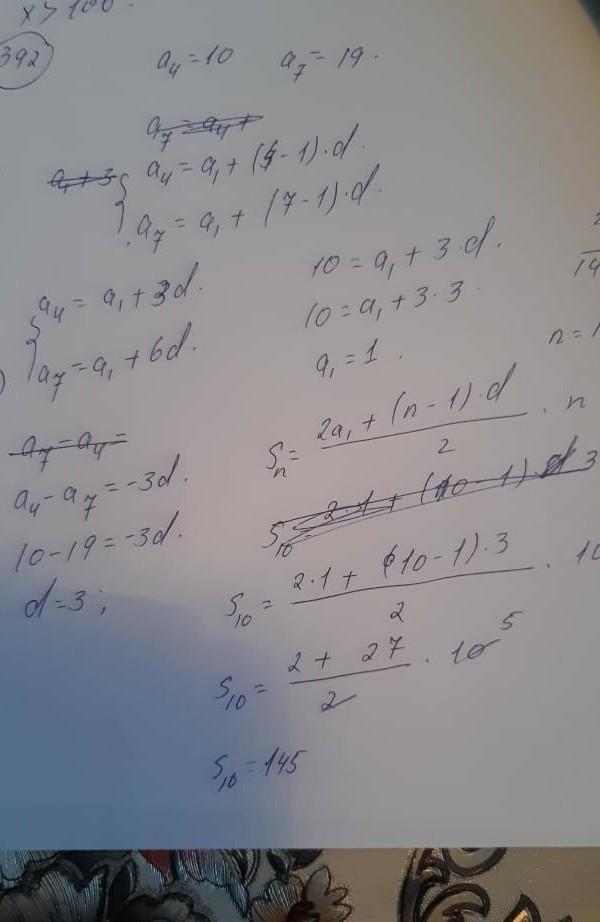 x > 100.
392
a₄ = 10 a₇ = 19.
a₇ = a₄ +
a₁ + 3
a₄ = a₁ + (4 - 1) · d.
a₇ = a₁ + (7 - 1) · d.
a₄ = a₁ + 3d.
a₇ = a₁ + 6d.
a₇ - a₄ =
a₄ - a₇ = -3d.
10 - 19 = -3d.
d = 3 ;
10 = a₁ + 3 · d.
10 = a₁ + 3 · 3
a₁ = 1 .
Sₙ = \frac{2a₁ + (n - 1) · d}{2} · n
S₁₀ 2·1 + (10 - 1) · 3
S₁₀ = \frac{2·1 + (10 - 1) · 3}{2} · 10
S₁₀ = \frac{2 + 27}{2} · 10 5
S₁₀ = 145
14
n =